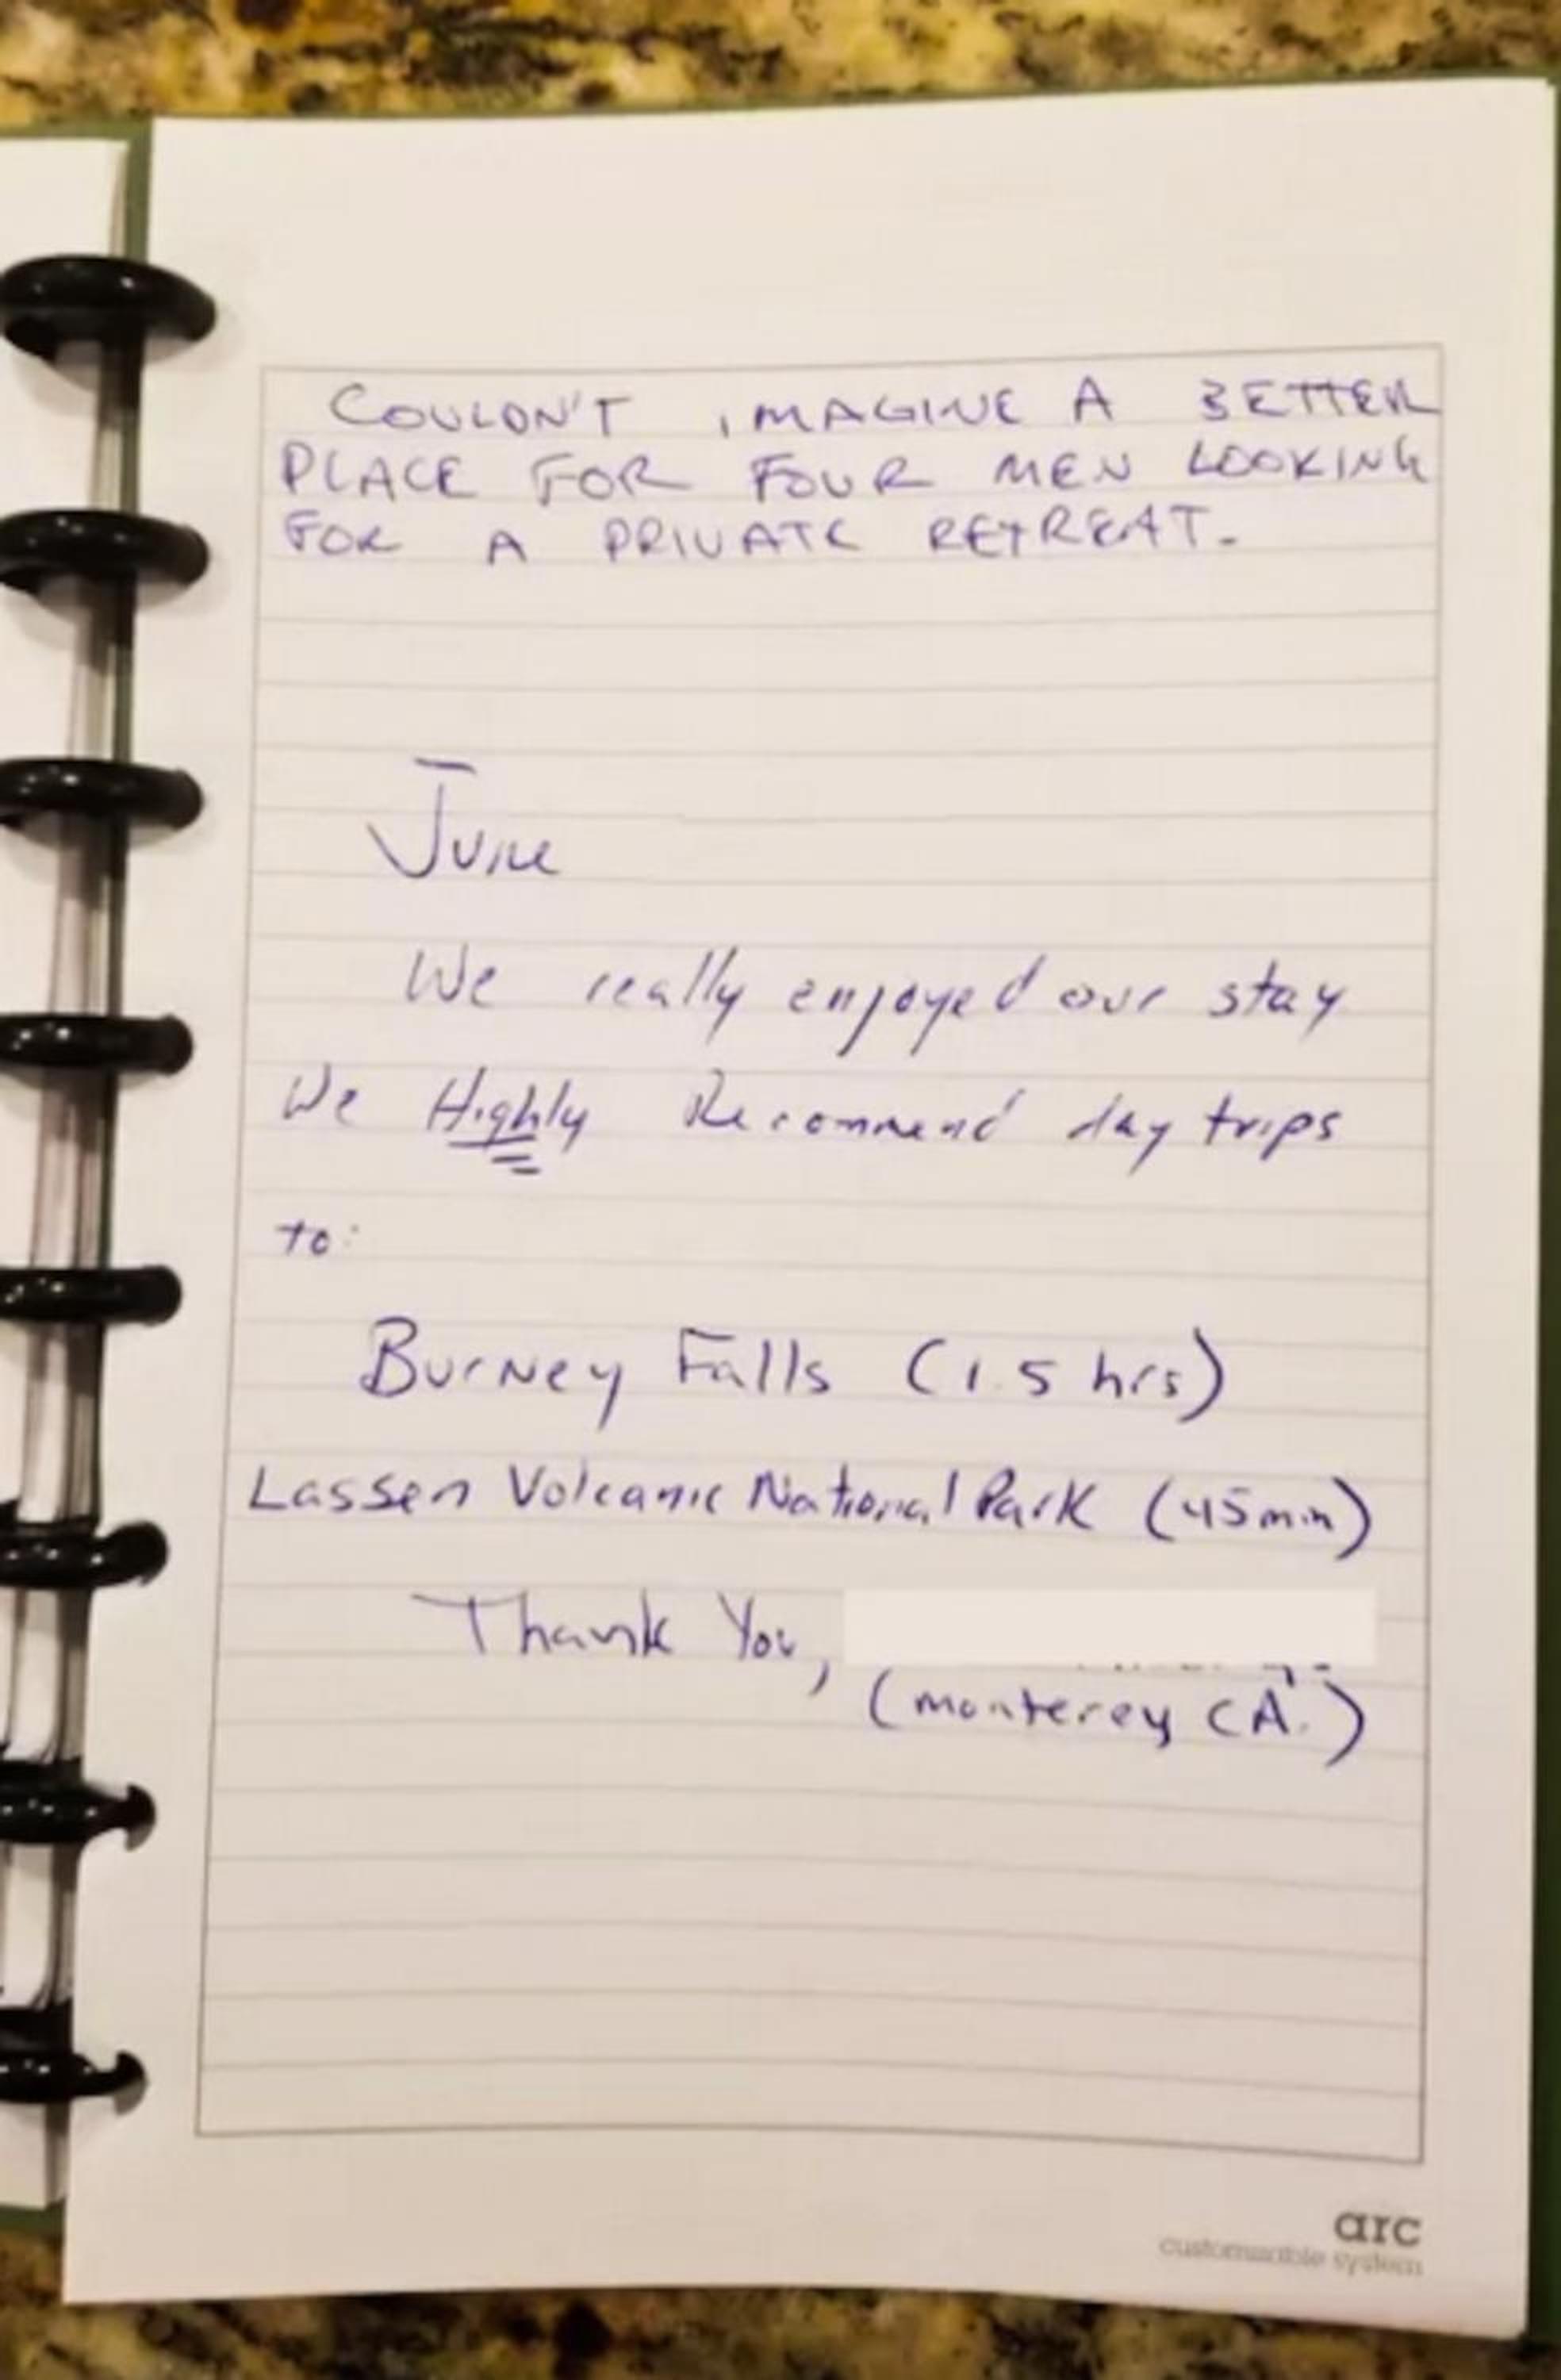 COULDN'T IMAGINE A BETTER
PLACE FOR FOUR MEN LOOKING
FOR A PRIVATE RETREAT.
June
We really enjoyed our stay
We Highly Recommend day trips
to:
Burney Falls (1.5 hrs)
Lassen Volcanic National Park (45min)
Thank You,
(monterey CA.)
arc
customizable system